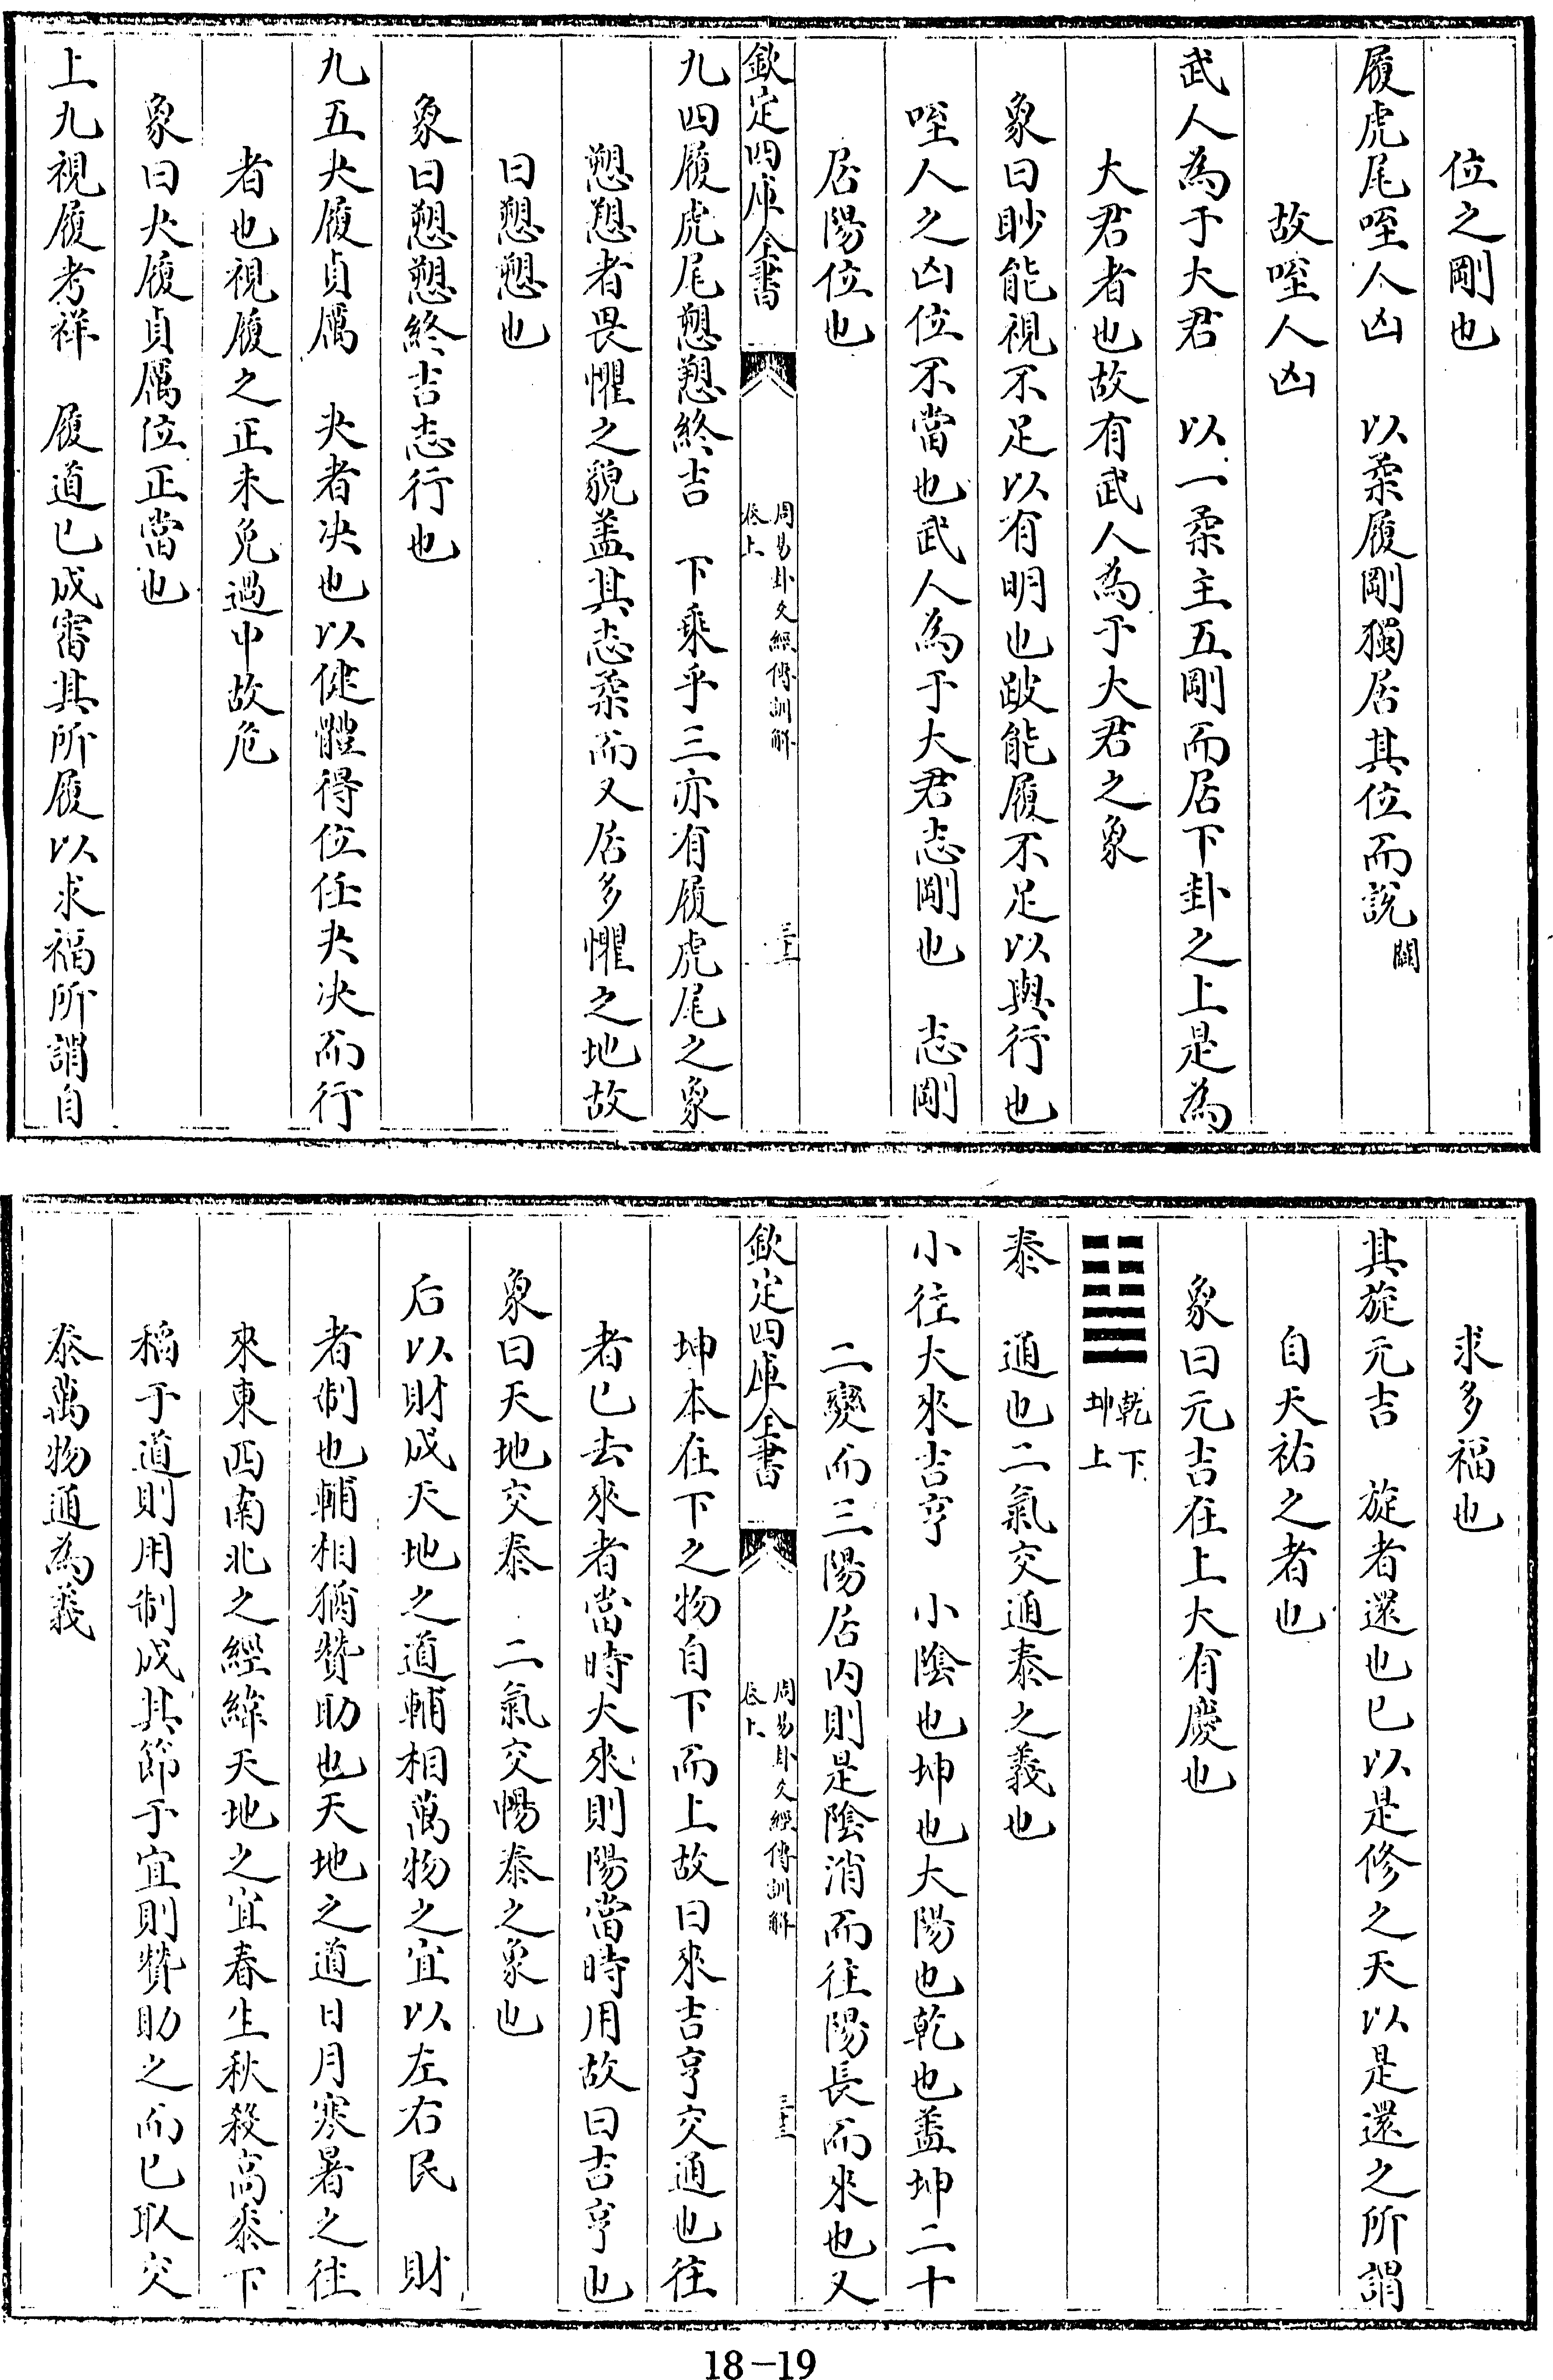 位之剛也
履虎尾咥人凶　以柔履剛獨居其位而說闕
故咥人凶
武人為于大君　以一柔主五剛而居下卦之上是為
大君者也故有武人為于大君之象
象曰眇能視不足以有明也跛能履不足以與行也
咥人之凶位不當也武人為于大君志剛也　志剛
居陽位也
欽定四庫全書　周易卦爻經傳訓解　卷上　三十一
九四履虎尾愬愬終吉　下乘乎三亦有履虎尾之象
愬愬者畏懼之貌蓋其志柔而又居多懼之地故
曰愬愬也
象曰愬愬終吉志行也
九五夬履貞厲　夬者決也以健體得位任夬決而行
者也視履之正未免過中故危
象曰夬履貞厲位正當也
上九視履考祥　履道已成審其所履以求福所謂自
求多福也
其旋元吉　旋者還也已以是修之天以是還之所謂
自天祐之者也
象曰元吉在上大有慶也
乾下坤上
泰　通也二氣交通泰之義也
小往大來吉亨　小陰也坤也大陽也乾也蓋坤二十
二變而三陽居內則是陰消而往陽長而來也又
欽定四庫全書　周易卦爻經傳訓解　卷上
坤本在下之物自下而上故曰來吉亨交通也往
者已去來者當時大來則陽當時用故曰吉亨也
象曰天地交泰　二氣交暢泰之象也
后以財成天地之道輔相萬物之宜以左右民　財
者制也輔相猶贊助也天地之道日月寒暑之往
來東西南北之經緯天地之宜春生秋殺高黍下
稻于道則用制成其節于宜則贊助之而已取交
泰萬物通為義
18-19